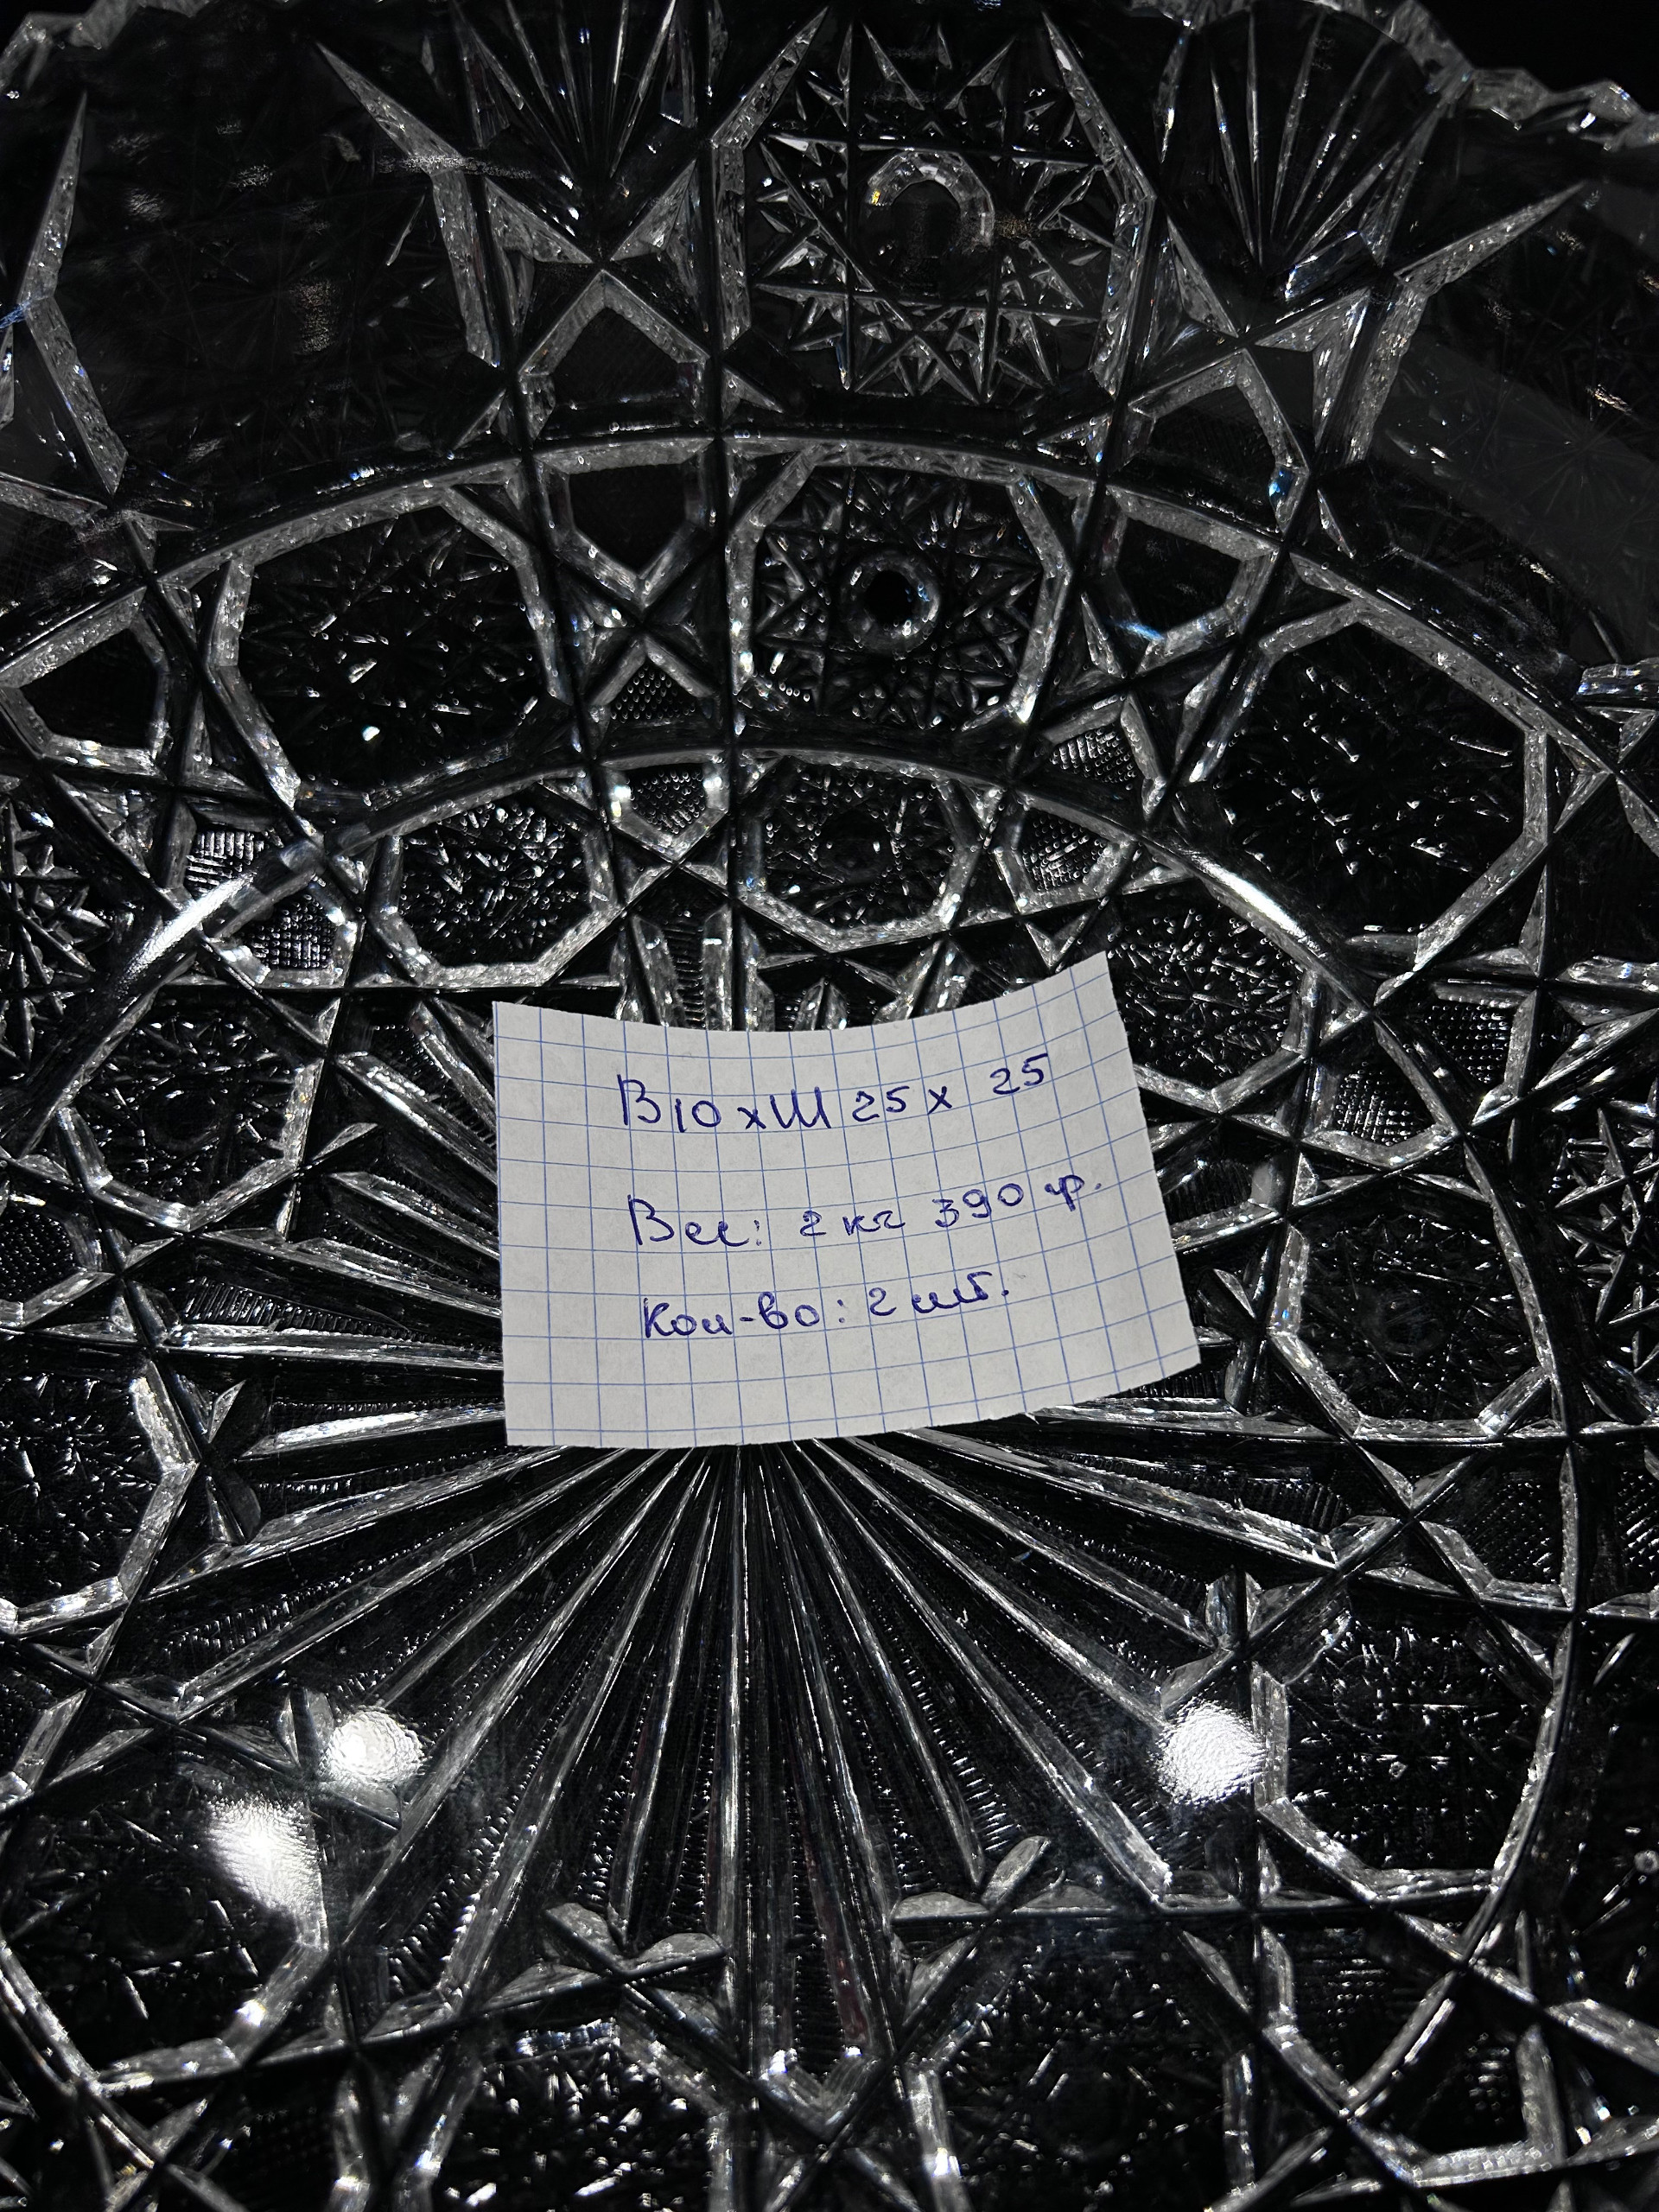 В 10 х Ш 25 х 25
Вес: 2 кг 390 гр.
Кол-во: 2 шт.